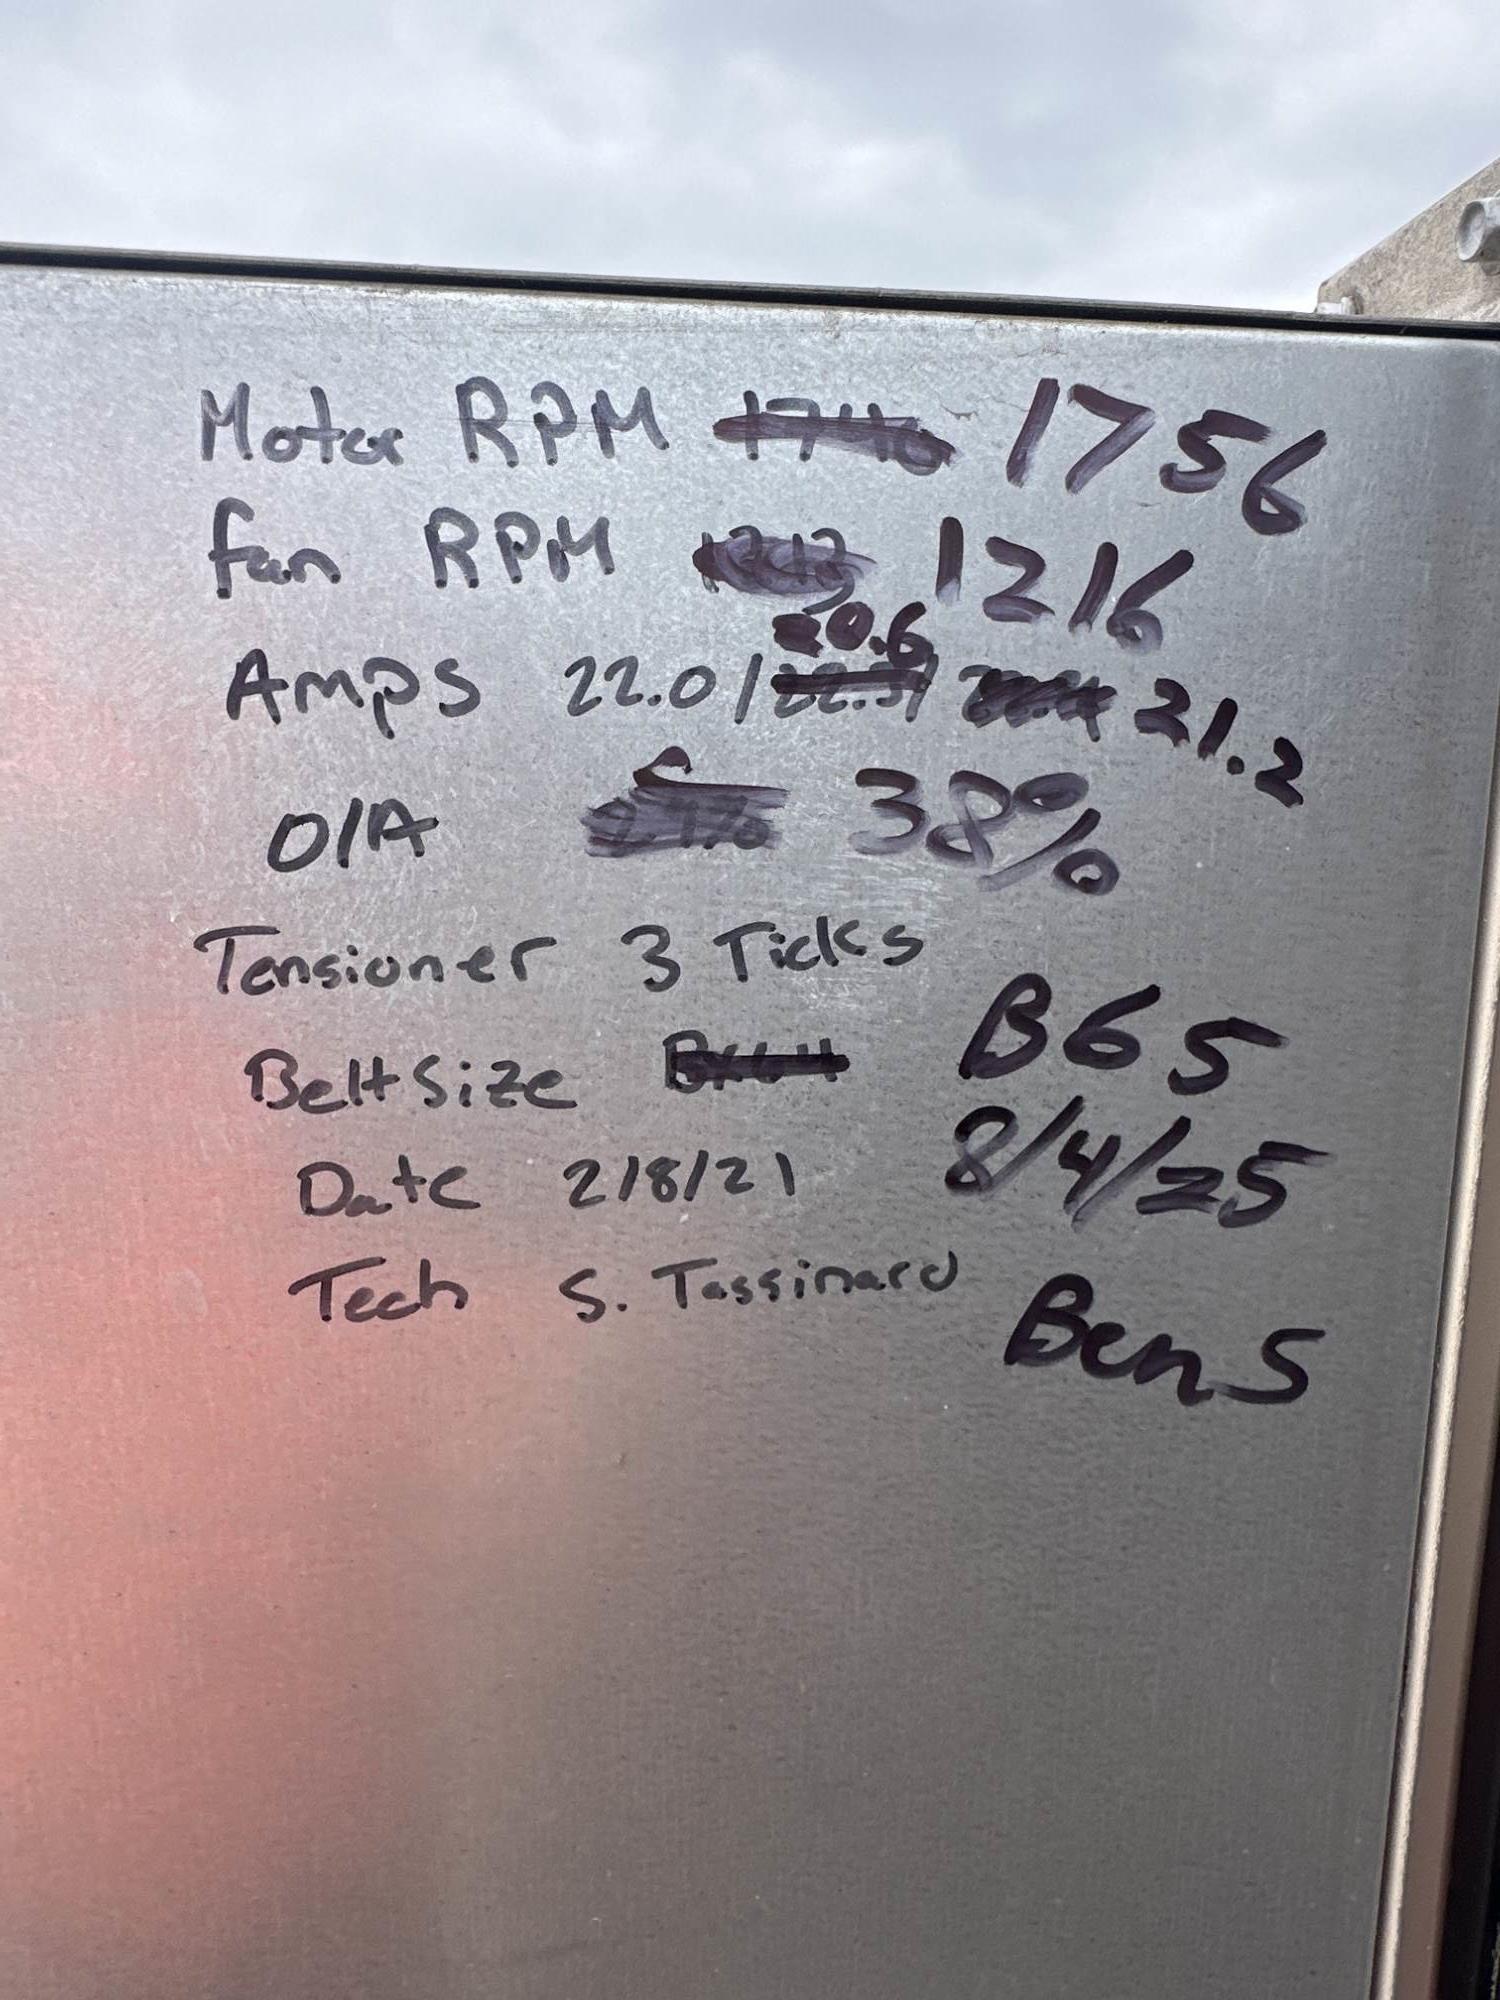 Motor RPM 1746 1756
fan RPM 1216
20.6
Amps 22.0/ 21.2
O/A 38%
Tensioner 3 Ticks
Belt Size BX64 B65
Date 2/8/21 8/4/25
Tech S. Tassinard Ben S